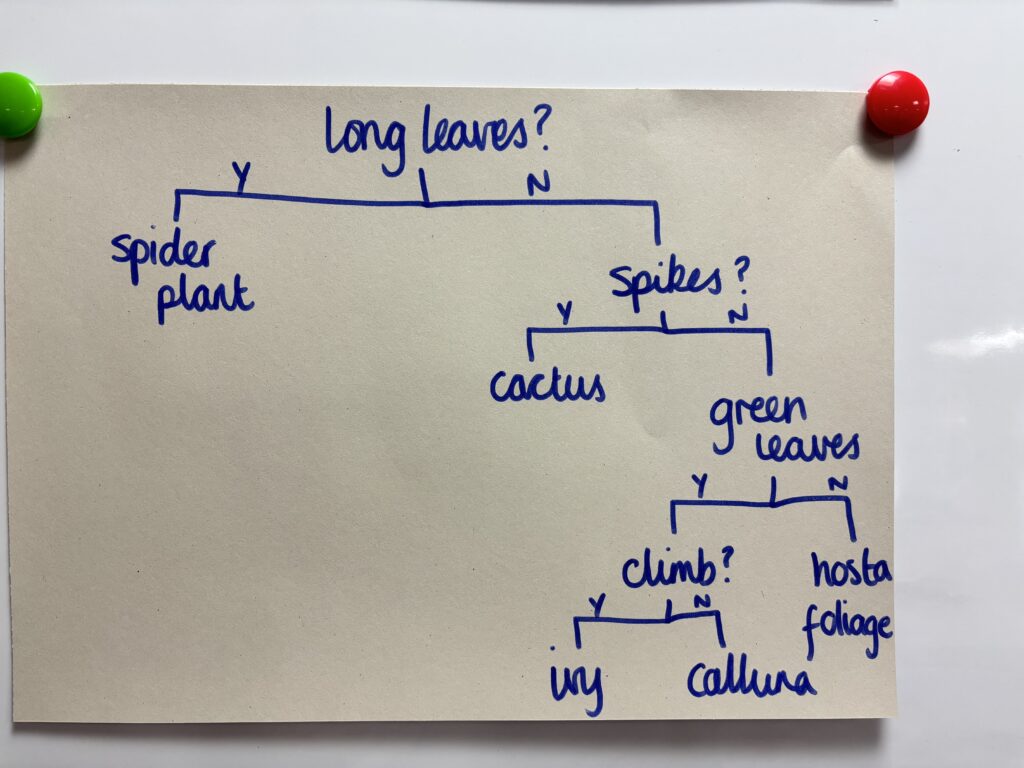 long leaves?
Y
N
spider
plant
spikes?
Y
N
cactus
green
leaves
Y
N
climb?
hosta
foliage
Y
N
ivy
calluna